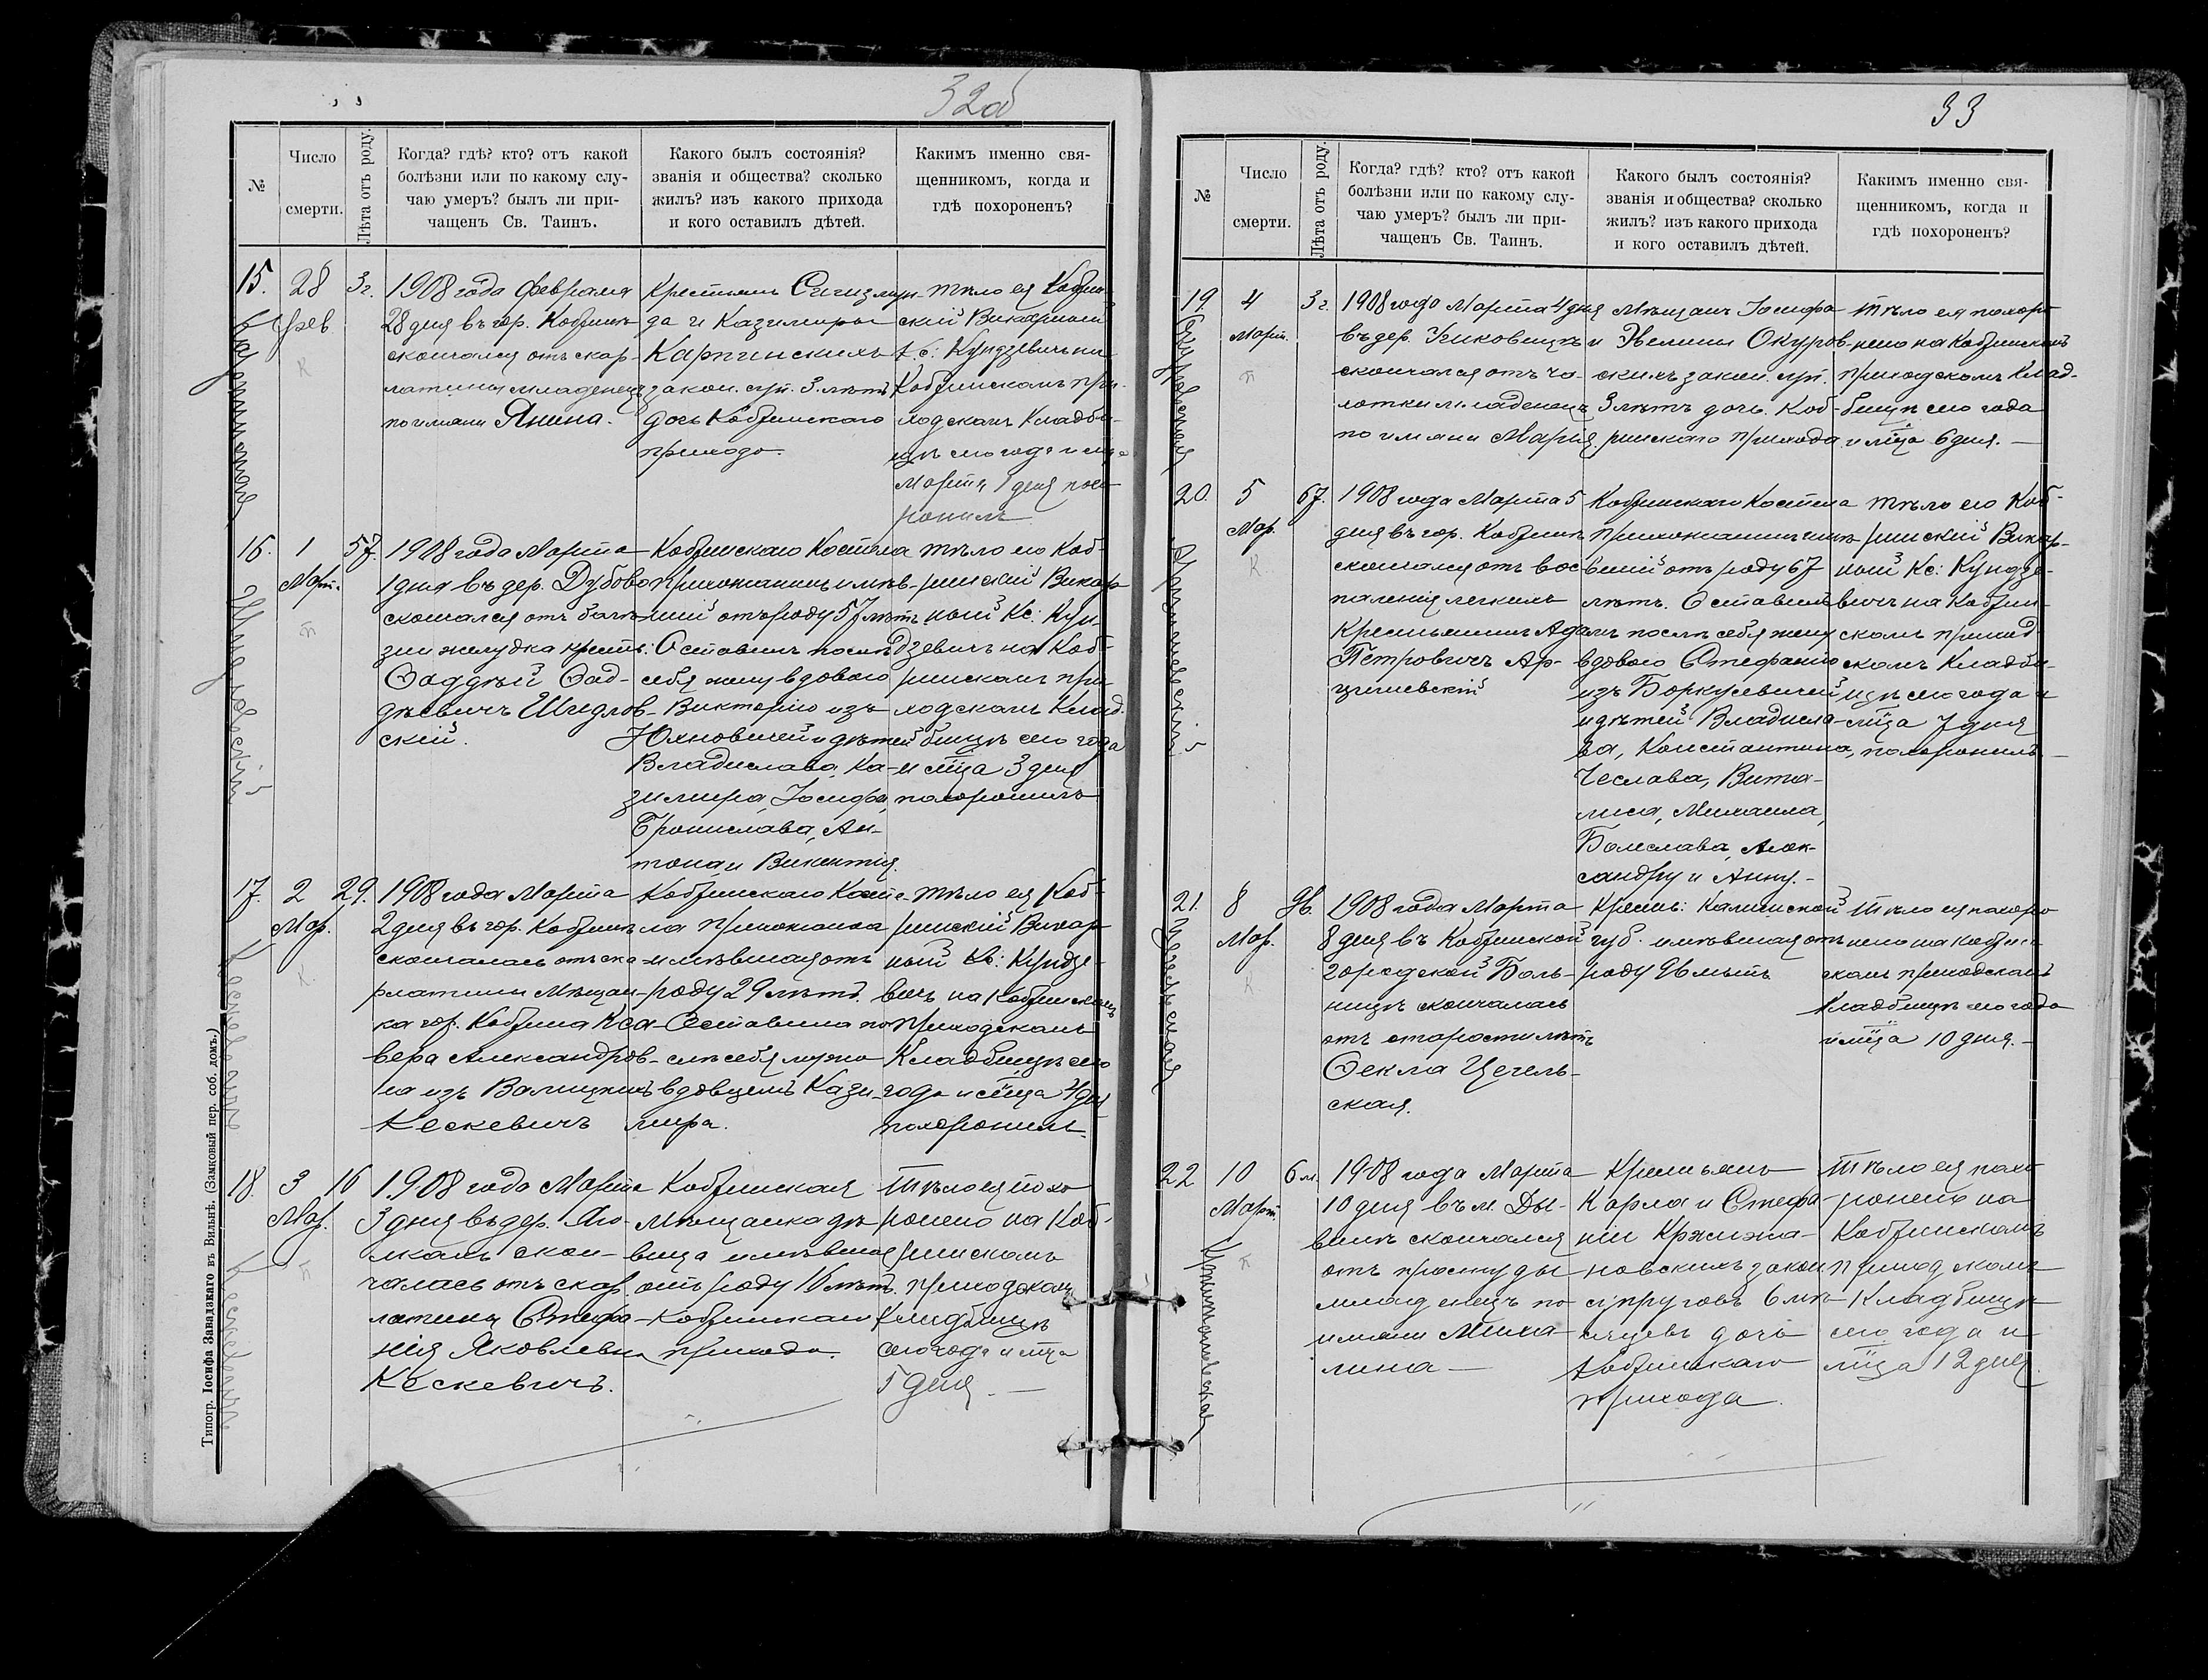 32об
№
Число
смерти.
Лѣта отъ роду.
Когда? гдѣ? кто? отъ какой
болѣзни или по какому слу-
чаю умеръ? былъ ли при-
чащенъ Св. Таинъ.
Какого былъ состоянія?
званія и общества? сколько
жилъ? изъ какого прихода
и кого оставилъ дѣтей.
Какимъ именно свя-
щенникомъ, когда и
гдѣ похороненъ?
15.
28
фев
К
3 г.
Карпинская
1908 года Февраля
28 дня въ гор. Кобринѣ
скончался отъ скар-
латины младенецъ
по имени Янина.
Крестьянъ Сигизмун-
да и Казимиры
Карпинскихъ
закон. суп. 3 лѣтъ
дочь Кобринскаго
прихода.
тѣло ея Кобрин
скій Викарный
Кс: Кундзевичъ на
Кобринскомъ при-
ходскомъ кладби-
щѣ сего года и мца
Марта 1 дня похо-
ронилъ
16.
1
Март.
п
57.
Шидловскій
1908 года Марта
1 дня въ дер. Дубово
скончался отъ болѣ-
зни желудка крест:
Ѳаддѣй Ѳад-
дѣевичъ Шидлов-
скій.
Кобринскаго Костела
прихожанинъ имѣв-
шій отъ роду 57 лѣтъ
Оставилъ послѣ
себя жену вдовою
Викторію изъ
Юхновичей и дѣтей
Владислава, Ка-
зимира, Іосифа,
Бронислава, Ан-
тона и Викентія.
тѣло его Коб-
ринскій Викар
ный Кс: Кун-
дзевичъ на Коб-
ринскомъ при
ходскомъ Клад-
бищѣ сего года
и мца 3 дня
похоронилъ
17.
2
Мар.
К
29.
Кескевичъ
1908 года Марта
2 дня въ гор. Кобринѣ
скончалась отъ ска-
рлатины мѣщан-
ка гор. Кобрина Кса-
вера Александров-
на изъ Валицкихъ
Кескевичъ
Кобринскаго Косте-
ла прихожанка
имѣвшая отъ
роду 29 лѣтъ.
Оставила по
слѣ себя мужа
вдовцемъ Кази-
мира.
тѣло ея Коб-
ринскій Викар
ный Кс: Кундзе-
вичъ на Кобринскомъ
приходскомъ
Кладбищѣ сего
года и мца 4 дня
похоронилъ
18.
3
Мар.
п
16
Кескевичъ
1908 года Марта
3 дня въ дер.
скон-
чалась отъ скар
латины Стефа-
нія Яковлевна
Кескевичъ.
Кобринская
Мѣщанка дѣ
вица имѣвшая
отъ роду 16 лѣтъ.
Кобринскаго
прихода.
Тѣло ея похо
ронено на Коб-
ринскомъ
приходскомъ
Кладбищѣ
сего года и мца
5 дня. —
Типогр. Іосифа Завадзкаго въ Вильнѣ. (Замковый пер. соб. домъ.)
33
№
Число
смерти.
Лѣта отъ роду.
Когда? гдѣ? кто? отъ какой
болѣзни или по какому слу-
чаю умеръ? былъ ли при-
чащенъ Св. Таинъ.
Какого былъ состоянія?
званія и общества? сколько
жилъ? изъ какого прихода
и кого оставилъ дѣтей.
Какимъ именно свя-
щенникомъ, когда и
гдѣ похороненъ?
19
4
Март.
п
3 г.
Окуровская
1908 года Марта 4 дня
въ дер.
скончался отъ ча-
хотки младенецъ
по имени Марія
Мѣщанъ Іосифа
и Эвелины Окуров-
скихъ закон. суп.
3 лѣтъ дочь. Коб-
ринскаго прихода
тѣло ея похоро
нено на Кобринскомъ
приходскомъ Клад-
бищѣ сего года
и мца 6 дня. —
20.
5
Мар.
К
67.
Арцишевскій
1908 года Марта 5
дня въ гор. Кобринѣ
скончался отъ вос-
паленія легкихъ
Крестьянинъ Адамъ
Петровичъ Ар-
цишевскій
Кобринскаго Костела
прихожанинъ имѣ-
вшій отъ роду 67
лѣтъ. Оставилъ
послѣ себя жену
вдовою Стефанію
изъ Боркусевичей
и дѣтей Владисла-
ва, Константина,
Чеслава, Вита-
лиса, Михаила,
Болеслава, Алек-
сандру и Анну. -
тѣло его Коб-
ринскій Викар-
ный Кс: Кундзе-
вичъ на Кобрин-
скомъ приход
скомъ Кладби-
щѣ сего года и
мца 7 дня
похоронилъ —
21.
8
Мар.
К
96.
Цегельская
1908 года Марта
8 дня въ Кобринской
городской Боль-
ницѣ скончалась
отъ старости лѣтъ
Ѳекла Цегель-
ская.
Крест: Калишской
губ. имѣвшая отъ
роду 96 лѣтъ
Тѣло ея похоро
нено на Кобрин-
скомъ приходскомъ
Кладбищѣ сего года
и мца 10 дня. -
22
10
Март
п
6 м.
Кржижановская
1908 года Марта
10 дня въ м. Ды-
винѣ скончался
отъ простуды
младенецъ по
имени Миха-
лина —
Крестьянъ
Карла и Стефа-
ніи Кржижа-
новскихъ закон
супруговъ 6 мѣ-
сяцевъ дочь
Кобринскаго
прихода.
Тѣло ея похо
ронено на
Кобринскомъ
приходскомъ
Кладбищѣ
сего года и
мца 12 дня.